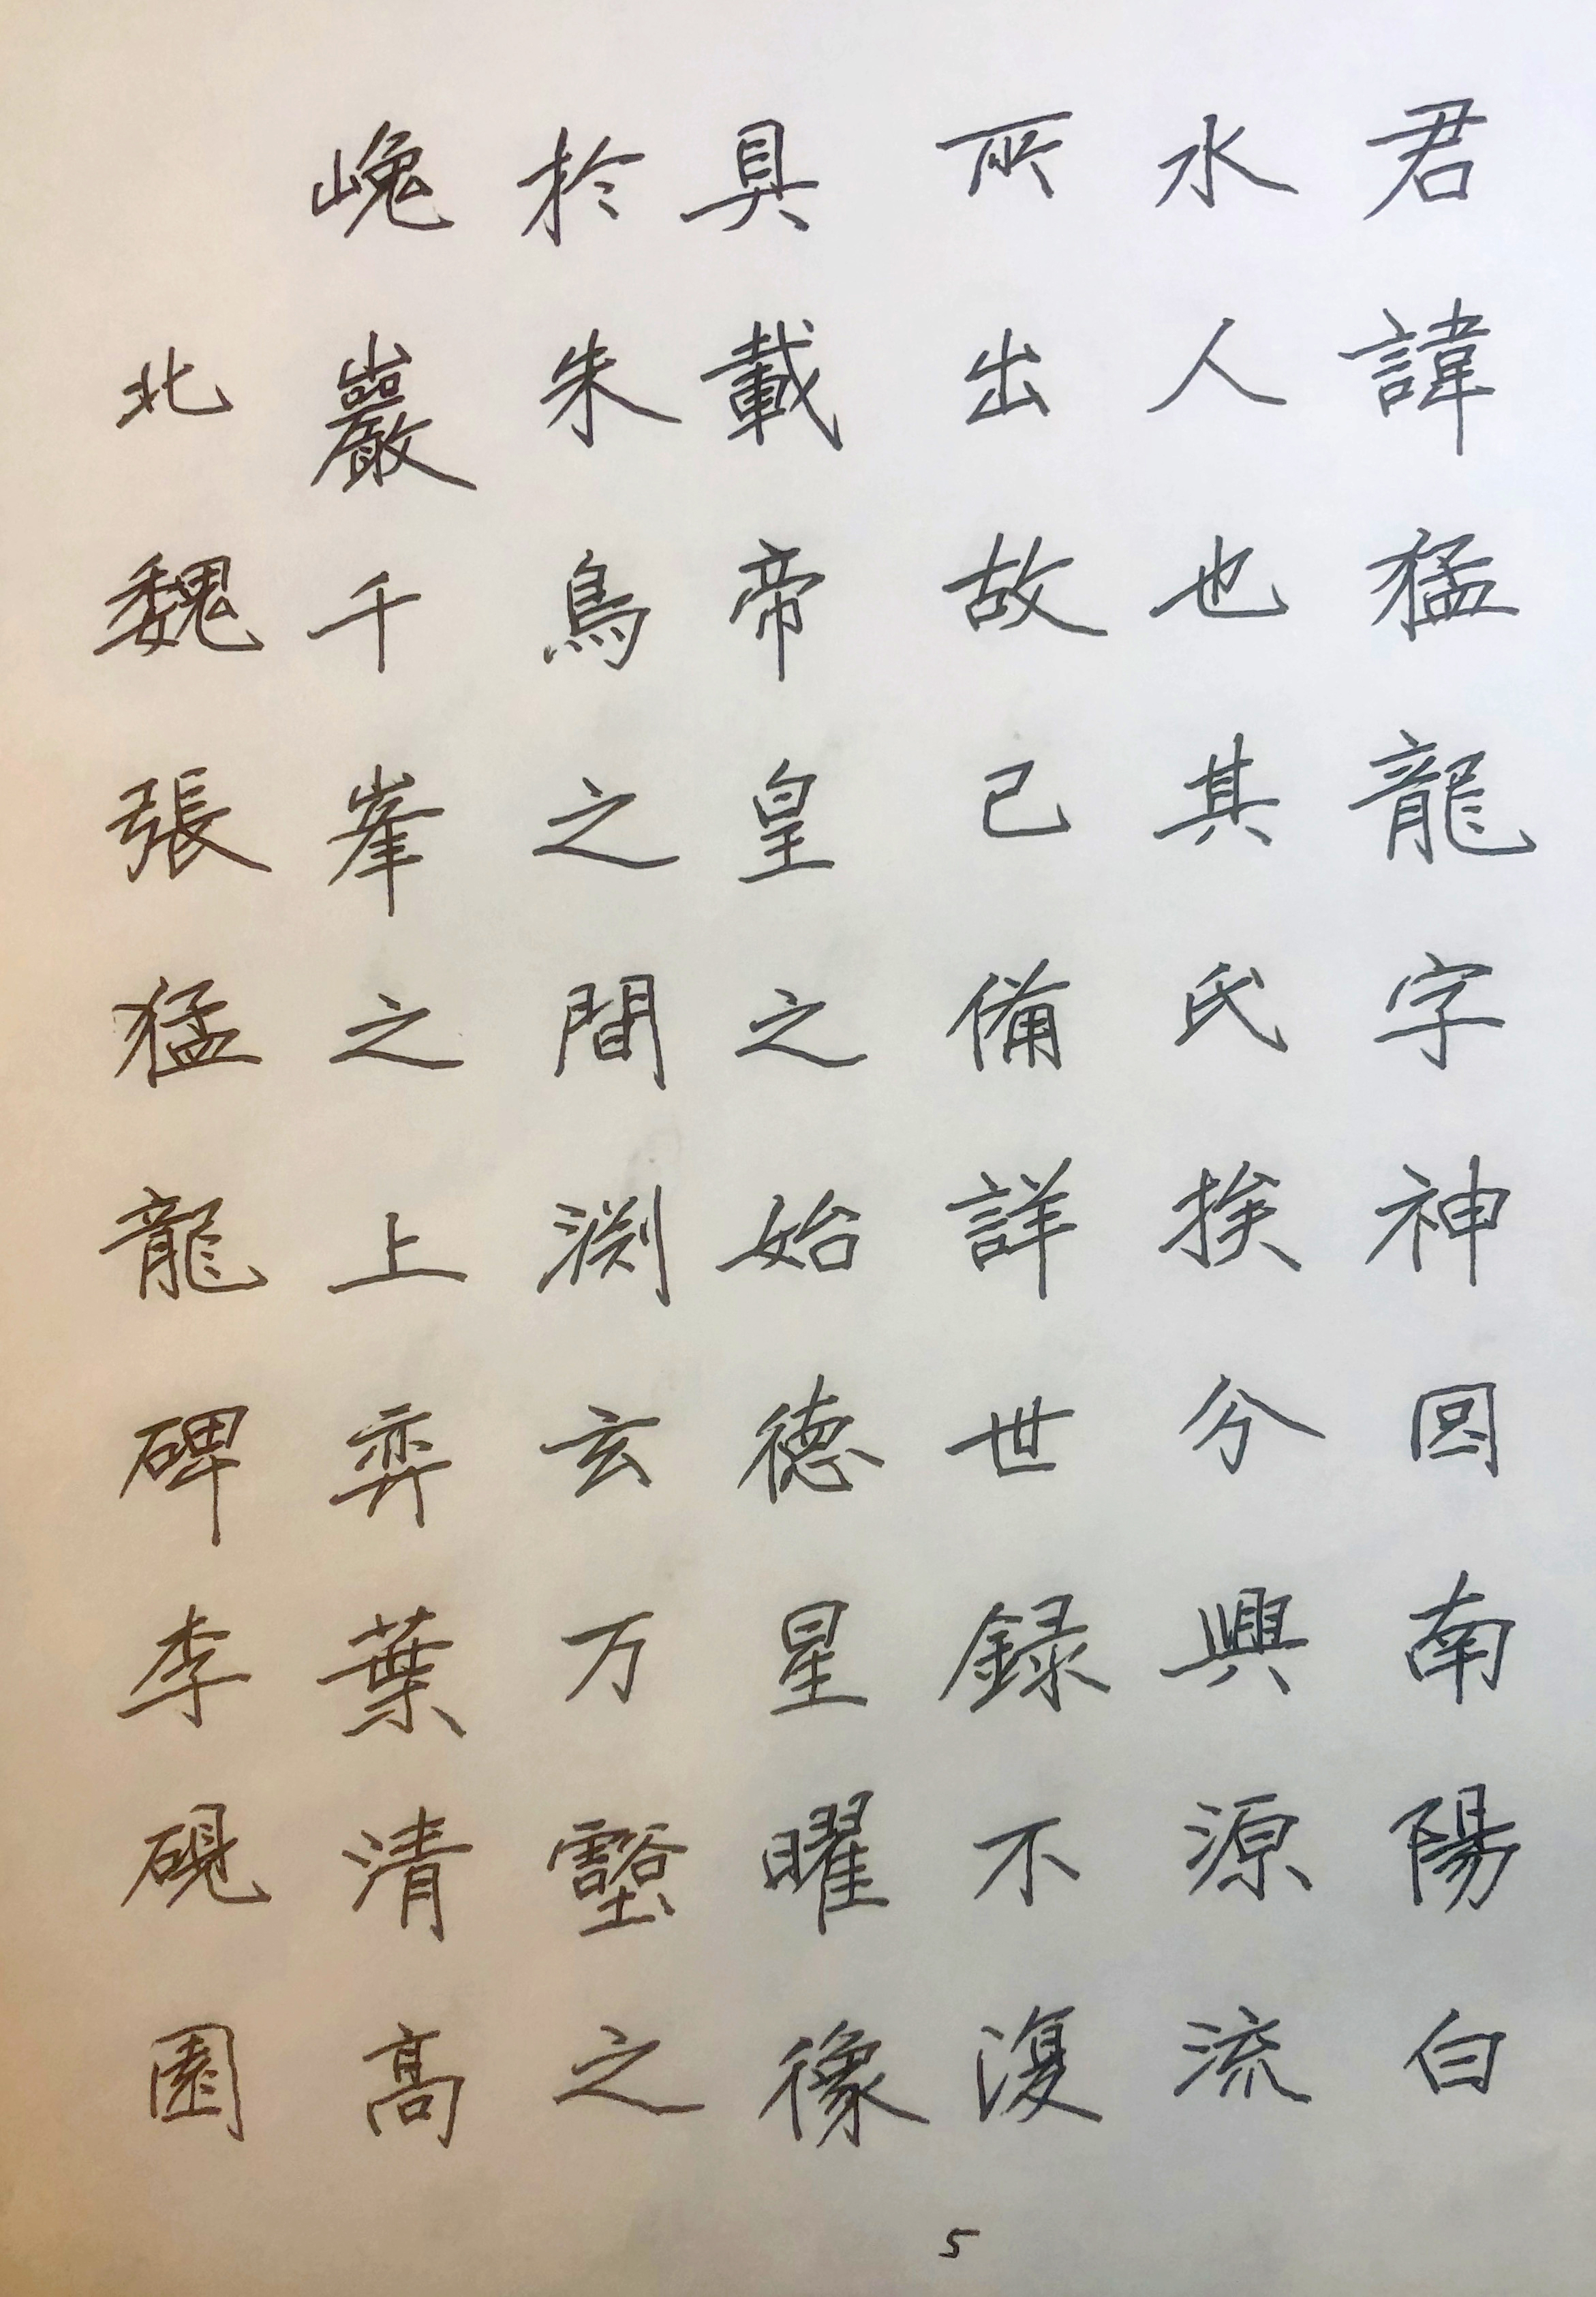 君諱猛龍字神囙南陽白
水人也其氏族分興源流
所出故已備詳世録不復
具載帝皇之始德星曜像
於朱鳥之間渊玄万壑之
巉巖千峯之上弈葉清高
北魏張猛龍碑李硯園
5